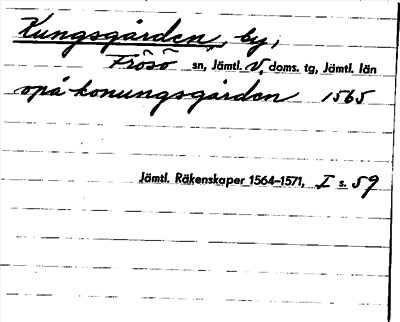 Kungsgården, by,
Frösö sn, Jämtl. V. doms. tg, Jämtl. län
opå konungsgården 1565
Jämtl. Räkenskaper 1564-1571, I s. 59